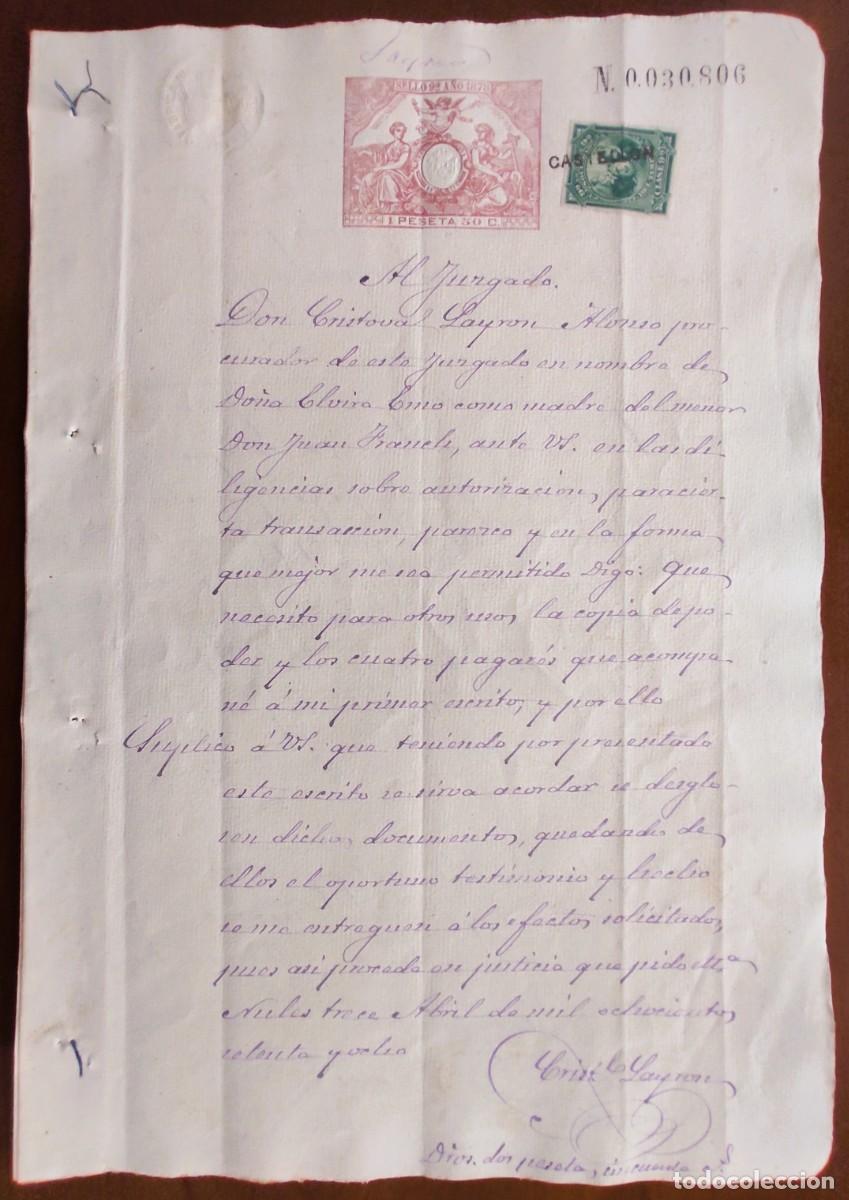 Layron
N. 0.030,806
SELLO 9º AÑO 1878
1 PESETA 50 C.
CASTELLON
Al Juzgado.
Don Cristoval Layron Alonso pro-
curador de este Juzgado en nombre de
Doña Elvira Emo como madre del menor
Don Juan Franch, ante VS. en las di-
ligencias sobre autorizacion, para cier-
ta transaccion, parezco y en la forma
que mejor me sea permitido Digo: Que
necesito para otros usos, la copia de po-
der y los cuatro pagarés que acompa-
ñé á mi primer escrito; y por ello
Suplico á VS. que teniendo por presentado
este escrito se sirva acordar se desglo-
sen dichos documentos, quedando de
ellos el oportuno testimonio y hecho
se me entreguen á los efectos solicitados,
pues asi procede en justicia que pido
Nules trece Abril de mil ochocientos
setenta y ocho
Crisl. Layron
Dros. dos pesetas, cincuenta cs.
todocoleccion